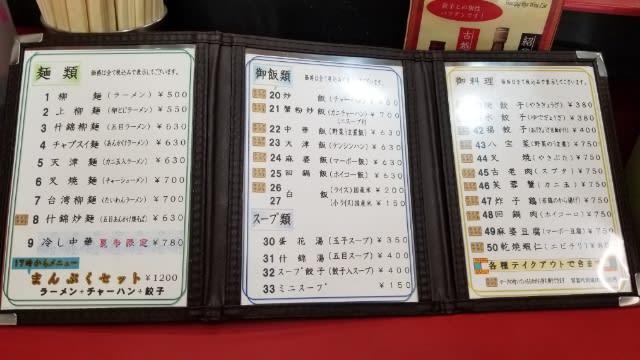 餃子との相性
バツグンです!
麺類
価格は全て税込みで表示してございます。
1 柳麺(ラーメン)¥500
2 上柳麺
¥550
3 什錦柳麺(五目ラーメン)¥630
4 チャプスイ麺(あんかけラーメン)¥630
5 天津麺(カニ玉入ラーメン)¥630
6 叉焼麺(チャーシューメン)¥700
7 台湾柳麺(たいわんラーメン)¥700
8 什錦炒麺(五目あんかけ焼そば)¥630
9 冷し中華 夏季限定 ¥780
17時からメニュー
まんぷくセット ¥1200
ラーメン+チャーハン+餃子
御飯類
価格は全て税込みで表示してございます。
20 炒飯(チャーハン)
21 蟹粉炒飯(カニチャーハン)¥700
ミニスープ付
22 中華飯(野菜うま煮飯)¥630
23 天津飯(テンシンハン)¥630
24 麻婆飯(マーボー飯)¥630
25 回鍋飯(ホイコー飯)¥630
26 白飯(ライス)国産米 ¥200
27 (小ライス)国産米 ¥150
スープ類
30 蛋花湯(玉子スープ)¥350
31 什錦湯(五目スープ)¥400
32 スープ餃子(餃子入スープ)¥400
33 ミニスープ ¥150
御料理
価格は全て税込みで表示してございます。
焼餃子(やきぎょうざ)¥380
水餃子(ゆでぎょうざ)¥380
42 揚餃子
¥400
43 八宝菜(野菜のうま煮)¥750
44 叉焼(やきぶた)¥750
45 古老肉(スブタ)¥750
46 芙蓉蟹(カニ玉)¥750
47 炸子鶏(若鶏のから揚げ)¥750
48 回鍋肉(ホイコーロ)¥750
49 麻婆豆腐(マーボー豆腐)¥750
50 乾焼蝦仁(エビチリ)
各種テイクアウトできま